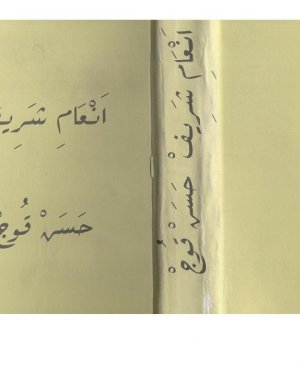 اَنْعَامِ شَرِيفْ
حَسَنْ قُوجْ
اَنْعَامِ شَرِيفْ حَسَنْ قُوجْ